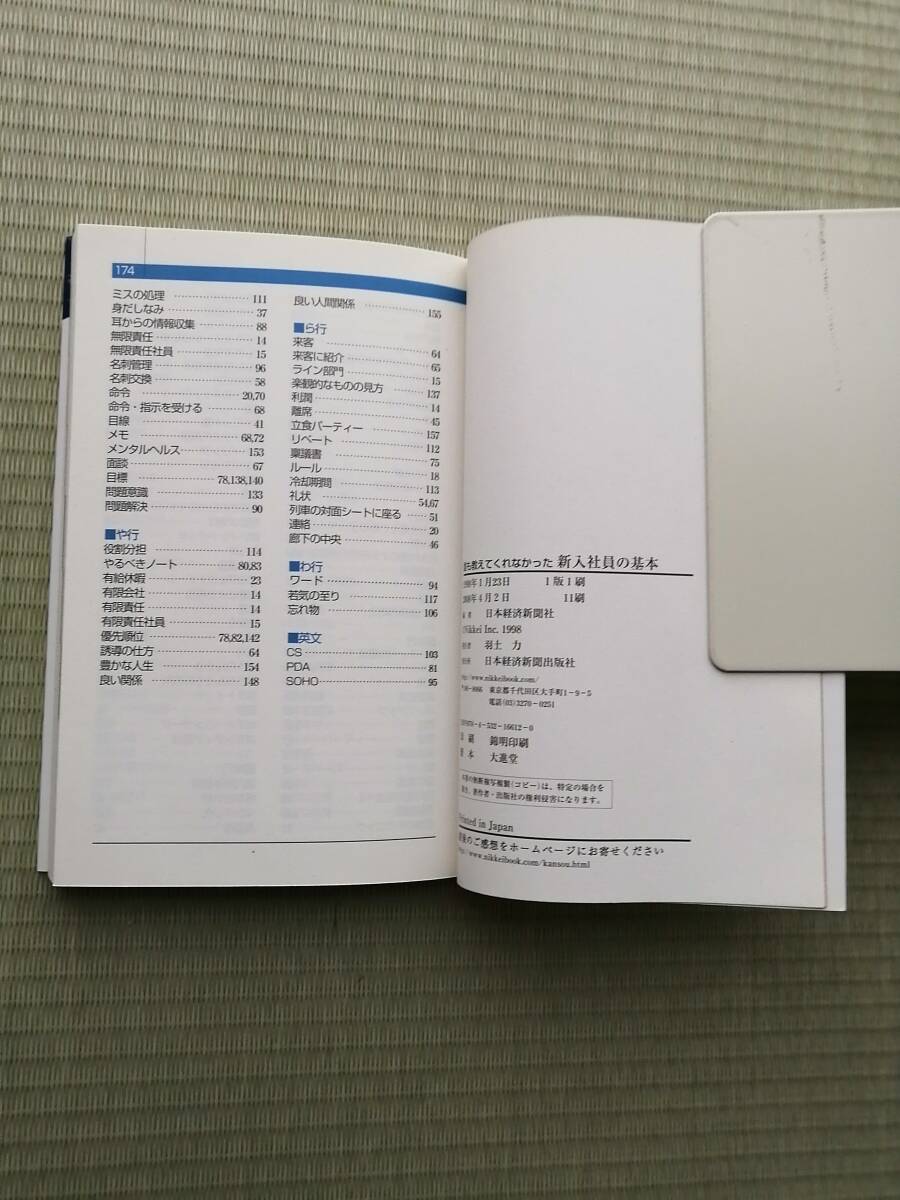 174
ミスの処理 111
身だしなみ 37
耳からの情報収集 88
無限責任 14
無限責任社員 15
名刺管理 96
名刺交換 58
命令 20,70
命令・指示を受ける 68
目線 41
メモ 68,72
メンタルヘルス 153
面談 67
目標 78,138,140
問題意識 133
問題解決 90
■や行
役割分担 114
やるべきノート 80,83
有給休暇 23
有限会社 14
有限責任 14
有限責任社員 15
優先順位 78,82,142
誘導の仕方 64
豊かな人生 154
良い関係 148
良い人間関係 155
■ら行
来客 64
来客に紹介 65
ライン部門 15
楽観的なものの見方 137
利潤 14
離席 45
立食パーティー 157
リベート 112
稟議書 75
ルール 18
冷却期間 113
礼状 54,67
列車の対面シートに座る 51
連絡 20
廊下の中央 46
■わ行
ワード 94
若気の至り 117
忘れ物 106
■英文
CS 103
PDA 81
SOHO 95
も教えてくれなかった 新入社員の基本
年1月23日 1版1刷
年4月2日 11刷
者 日本経済新聞社
Nikkei Inc. 1998
者 羽土 力
日本経済新聞出版社
http://www.nikkeibook.com/
東京都千代田区大手町1-9-5
電話(03)3270-0251
978-4-532-16612-0
刷 錦明印刷
本 大進堂
の無断複写複製(コピー)は、特定の場合を
き、著作者・出版社の権利侵害になります。
Printed in Japan
後のご感想をホームページにお寄せください
http://www.nikkeibook.com/kansou.html